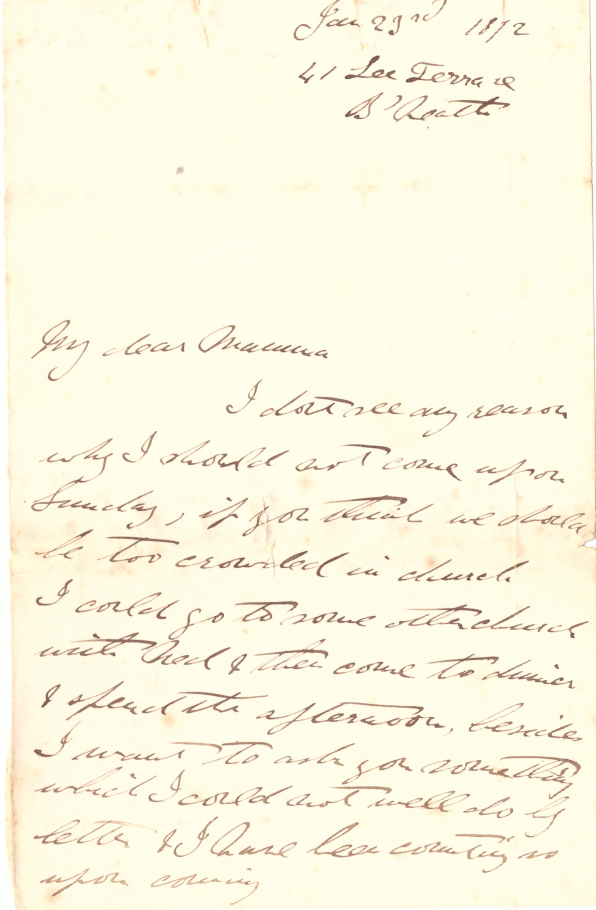 Jan 23rd 1872
41 Lee Terrace
B'heath
My dear Mamma
I dont see any reason
why I should not come upon
Sunday, if you think we should
be too crowded in church
I could go to some other church
with Ned & then come to dinner
& spend the afternoon, besides
I want to ask you something
which I could not well do by
letter & I have been counting so
upon coming